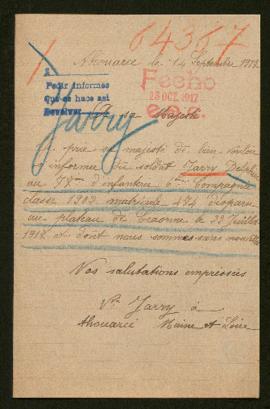 64367
1
Thouarcé le 14 Septembre 1917
Fecho
23 OCT. 1917
Pedir informes
Que se hace así
Devolver
Jarry
A sa Majesté
Je prie sa majesté de bien vouloir
informer du soldat Jarry
au d'infanterie Compagnie
classe 1912 matricule 424 disparu
au plateau de Craonne le 22 Juillet
1917 et dont nous sommes sans nouvelles
Nos salutations empressées
Jarry à
Thouarcé Maine et Loire